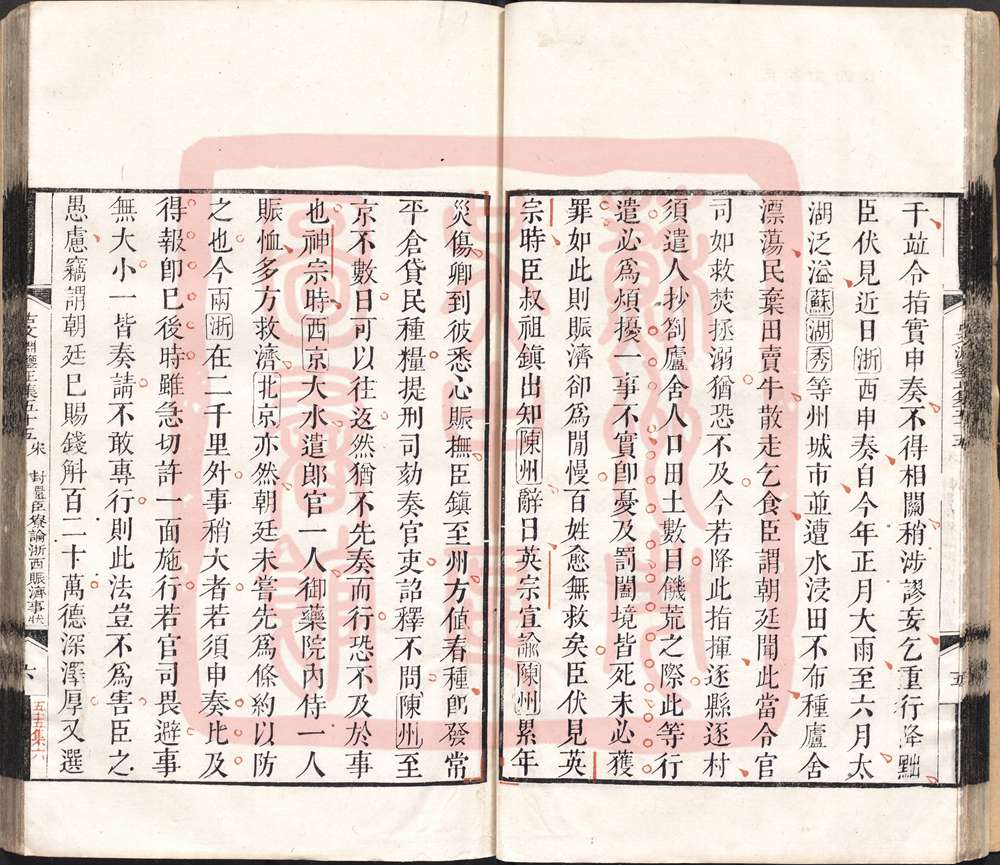 千訟令指實申奏不得相關稍涉謬妄乞重行降黜
臣伏見近日浙西申奏自今年正月大雨至六月太
湖泛溢蘇湖秀等州城市並遭水浸田不布種廬舍
漂蕩民棄田賣牛散走乞食臣謂朝廷聞此當令官
司如救焚拯溺猶恐不及今若降此指揮逐縣逐村
須遣人抄劄廬舍人口田土數目饑荒之際此等行
遣必為煩擾一事不實卽憂及罰闔境皆死未必獲
罪如此則賑濟卻為閒慢百姓愈無救矣臣伏見英
宗時臣叔祖鎮出知陳州辭日英宗宣諭陳州累年
災傷卿到彼悉心賑撫臣鎮至州方值春種卽發常
平倉貸民種糧提刑司劾奏官吏詔釋不問陳州至
京不數日可以往返然猶不先奏而行恐不及於事
也神宗時西京大水遣郎官一人御藥院內侍一人
賑恤多方救濟北京亦然朝廷未嘗先為條約以防
之也今兩浙在二千里外事稍大者若須申奏比及
得報卽已後時雖急切許一面施行若官司畏避事
無大小一皆奏請不敢專行則此法豈不為害臣之
愚慮竊謂朝廷已賜錢斛百二十萬德深澤厚又選
古文淵鑒正集五十五 宋 封還臣寮論浙西賑濟事狀
六
五十五集六
五